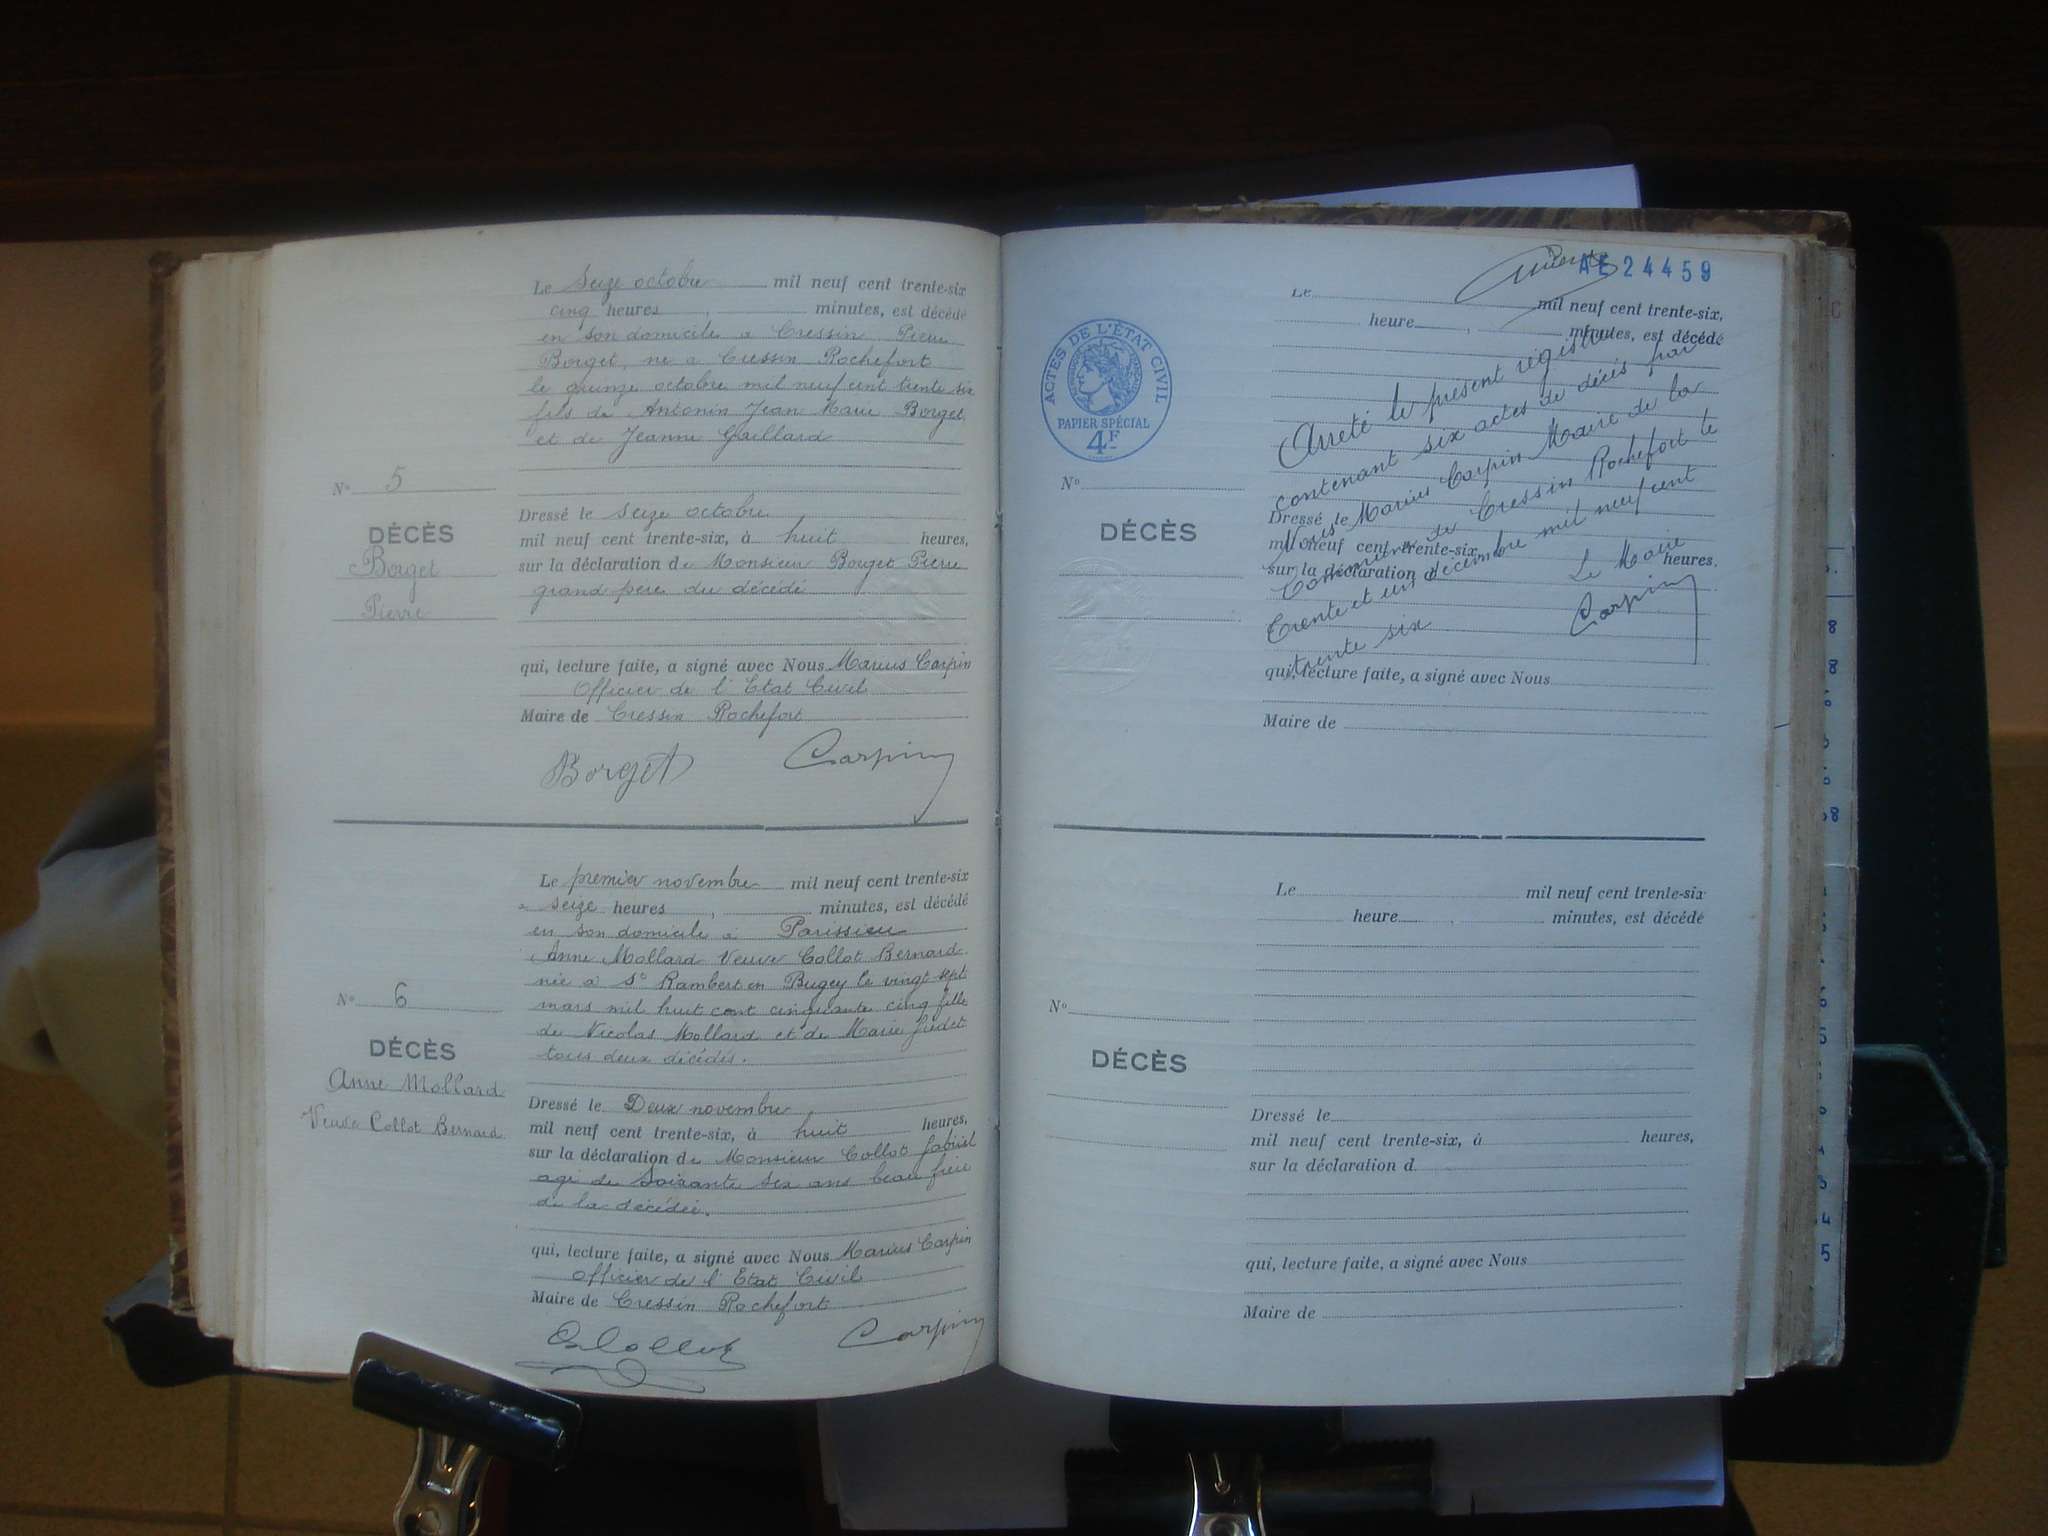 Le Seize octobre mil neuf cent trente-six
cinq heures, minutes, est décédé
en son domicile à Cressin Pierre
Borget, né à Cressin Rochefort
le quinze octobre mil neuf cent trente six
fils de Antonin Jean Marie Borget
et de Jeanne Gaillard
N° 5
DÉCÈS
Borget
Pierre
Dressé le Seize octobre
mil neuf cent trente-six, à huit heures,
sur la déclaration de Monsieur Borget Pierre
grand père du décédé
qui, lecture faite, a signé avec Nous Marius Carpin
Officier de l'Etat Civil
Maire de Cressin Rochefort
Borget Carpin
Le premier novembre mil neuf cent trente-six
à seize heures, minutes, est décédé
en son domicile à Parissieu
Anne Mollard Veuve Collot Bernard
née à St Rambert en Bugey le vingt sept
mars mil huit cent cinquante cinq fille
de Nicolas Mollard et de Marie
tous deux décédés.
N° 6
DÉCÈS
Anne Mollard
Veuve Collot Bernard
Dressé le Deux novembre
mil neuf cent trente-six, à huit heures,
sur la déclaration de Monsieur Collot
agé de Soixante six ans beau frère
de la décédée.
qui, lecture faite, a signé avec Nous Marius Carpin
Officier de l'Etat Civil
Maire de Cressin Rochefort
Carpin
AE 24459
Le mil neuf cent trente-six,
heure, minutes, est décédé
ACTES DE L'ÉTAT CIVIL
PAPIER SPÉCIAL
4F
Arrêté le présent registre
contenant six actes de décès par
Nous Marius Carpin Maire de la
Commune de Cressin Rochefort le
trente et un décembre mil neuf cent
trente six
Le Maire
Carpin
N°
DÉCÈS
Dressé le
mil neuf cent trente-six, heures.
sur la déclaration d
qui, lecture faite, a signé avec Nous
Maire de
Le mil neuf cent trente-six
heure, minutes, est décédé
N°
DÉCÈS
Dressé le
mil neuf cent trente-six, à heures,
sur la déclaration d
qui, lecture faite, a signé avec Nous
Maire de